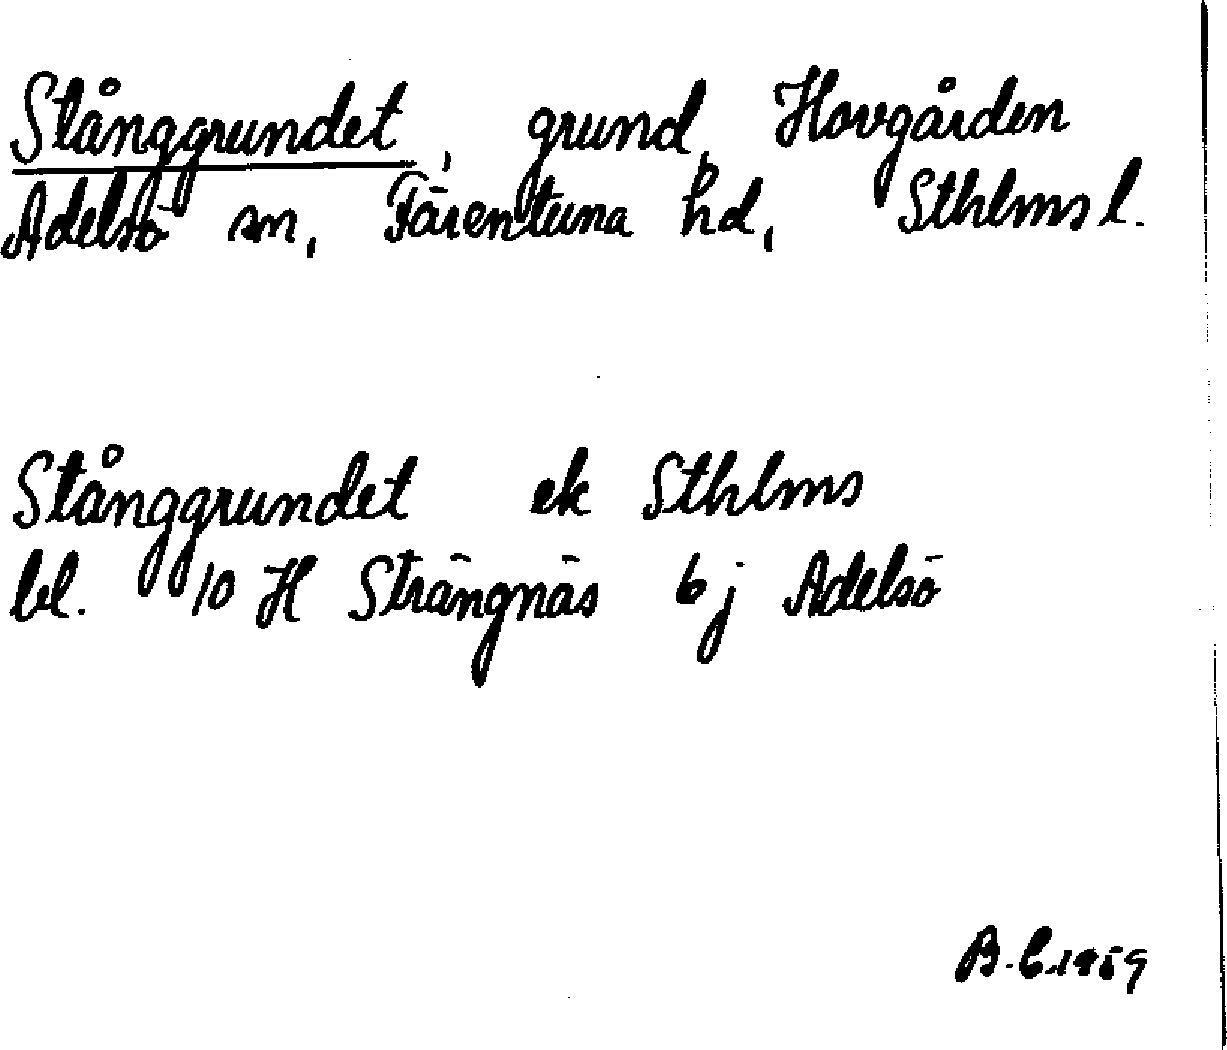 Stånggrundet, grund, Hovgården
Adelsö sn, Färentuna hd, Sthlms l.
Stånggrundet ek Sthlms
bl. 10 H Strängnäs 6 j Adelsö
B.C.1959